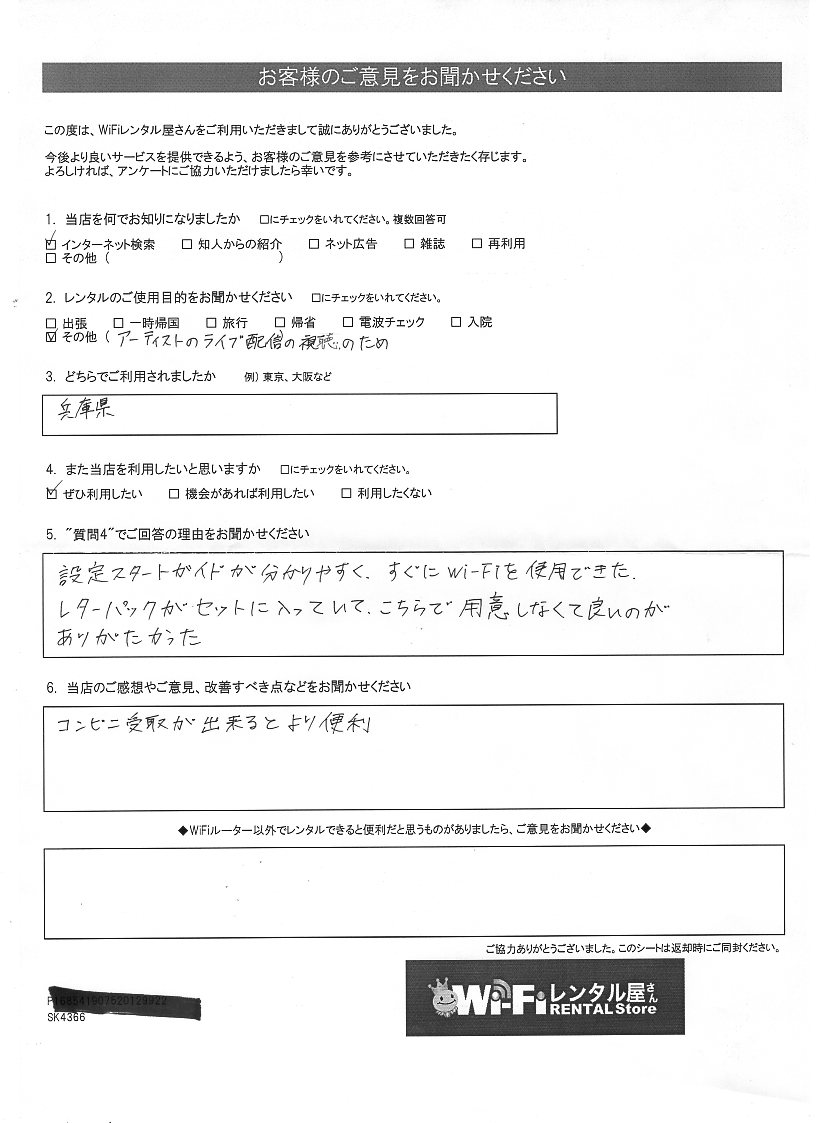 お客様のご意見をお聞かせください
この度は、WiFiレンタル屋さんをご利用いただきまして誠にありがとうございました。
今後より良いサービスを提供できるよう、お客様のご意見を参考にさせていただきたく存じます。
よろしければ、アンケートにご協力いただけましたら幸いです。
1. 当店を何でお知りになりましたか □にチェックをいれてください。複数回答可
☑ インターネット検索 □ 知人からの紹介 □ ネット広告 □ 雑誌 □ 再利用
□ その他 ( )
2. レンタルのご使用目的をお聞かせください □にチェックをいれてください。
□ 出張 □ 一時帰国 □ 旅行 □ 帰省 □ 電波チェック □ 入院
☑ その他 ( アーティストのライブ配信の視聴のため )
3. どちらでご利用されましたか 例) 東京、大阪など
兵庫県
4. また当店を利用したいと思いますか □にチェックをいれてください。
☑ ぜひ利用したい □ 機会があれば利用したい □ 利用したくない
5. "質問4"でご回答の理由をお聞かせください
設定スタートガイドが分かりやすく、すぐにWi-Fiを使用できた。
レターパックがセットに入っていて、こちらで用意しなくて良いのが
ありがたかった
6. 当店のご感想やご意見、改善すべき点などをお聞かせください
コンビニ受取が出来るとより便利
◆WiFiルーター以外でレンタルできると便利だと思うものがありましたら、ご意見をお聞かせください◆
ご協力ありがとうございました。このシートは返却時にご同封ください。
SK4366
Wi-Fiレンタル屋さん
RENTAL Store